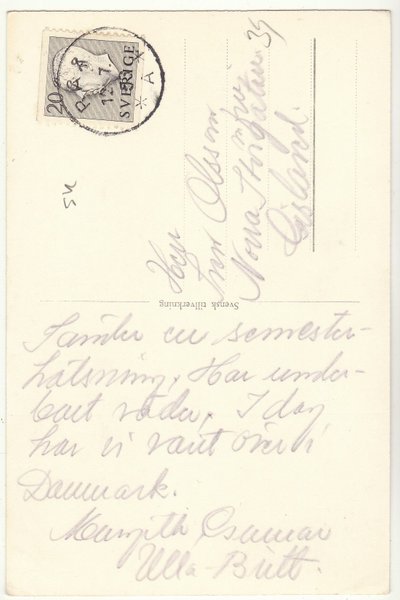 20
SVERIGE
RAA
12. 7.
A
SN
Herr
Ivar Olsson
Norra Storgatan 39
Gislaved.
Svensk tillverkning
Sänder en semester-
hälsning. Har under-
bart väder. I dag
har vi varit över i
Danmark.
Margith Gunnar
Ulla-Britt.